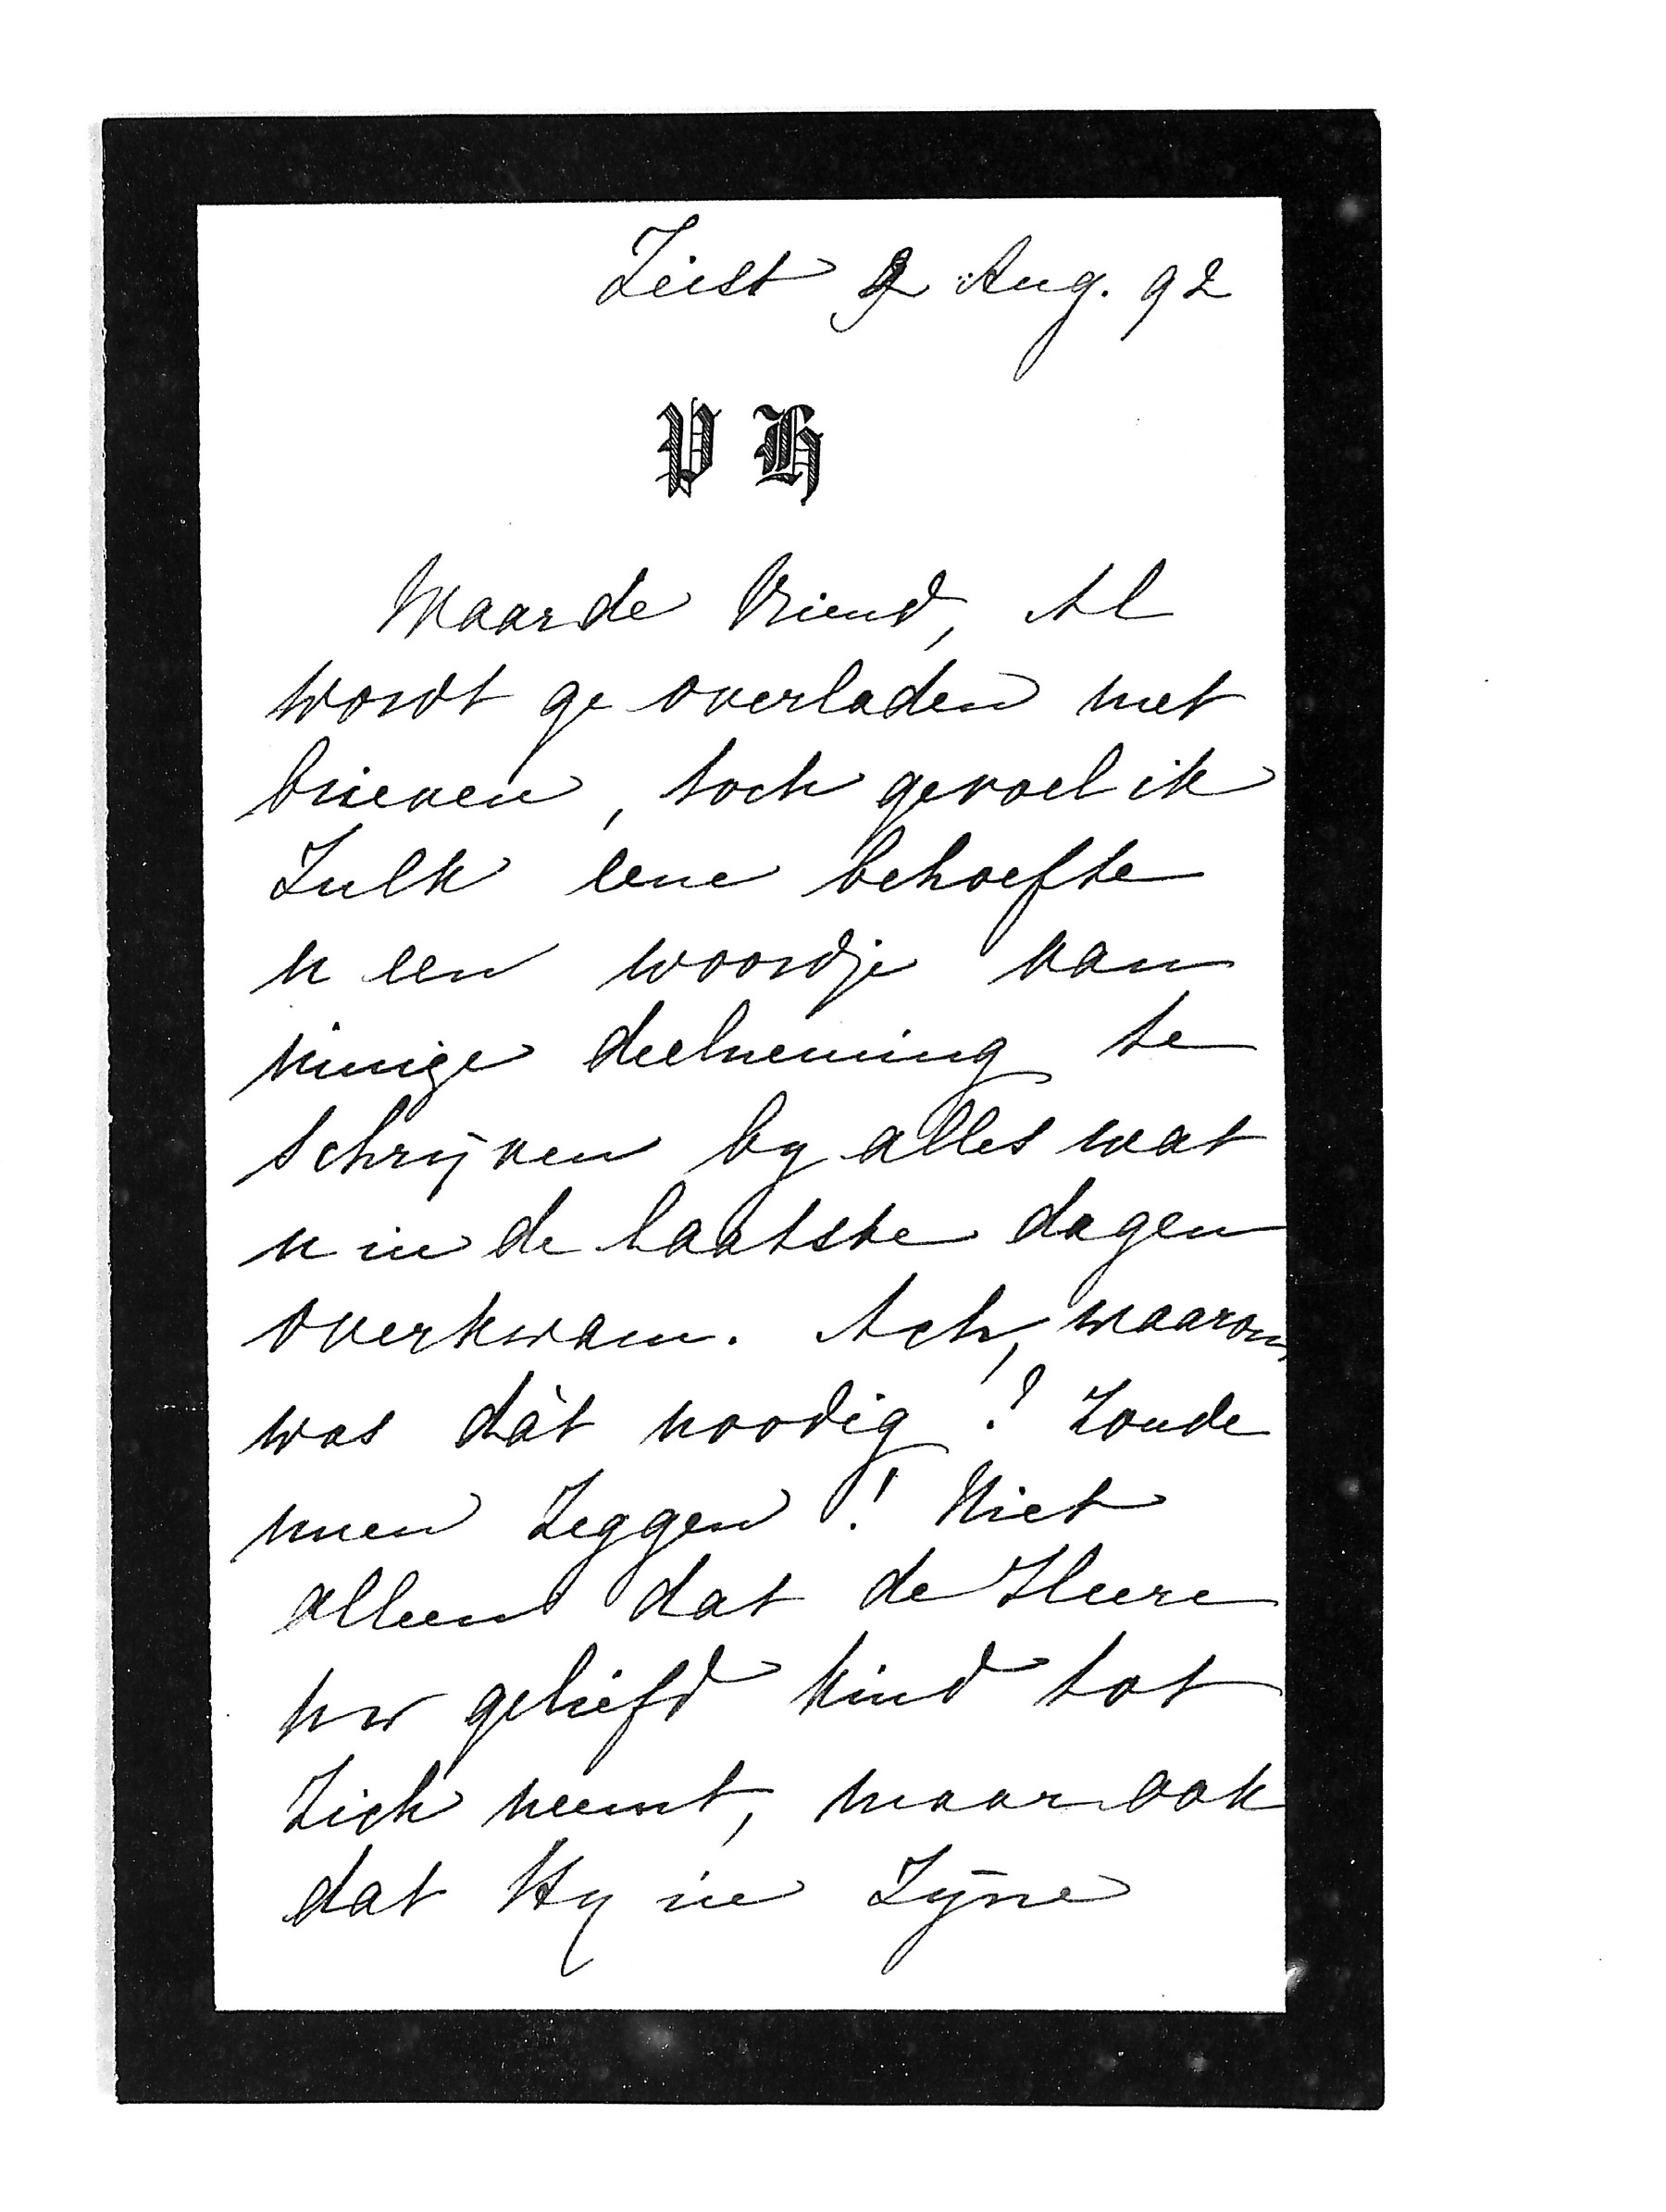 Zeist 2 Aug. 92
P H
Waarde Vriend, Al
wordt ge overladen met
brieven, toch gevoel ik
Zulk eene behoefte
u een woordje van
innige deelneming te
schrijven by alles wat
u in de laatste dagen
overkwam. Ach, waarom
was dàt noodig? Zoude
men Zeggen! Niet
alleen dat de Heere
uw geliefd kind tot
Zich neemt, maar ook
dat Hy in Zijne